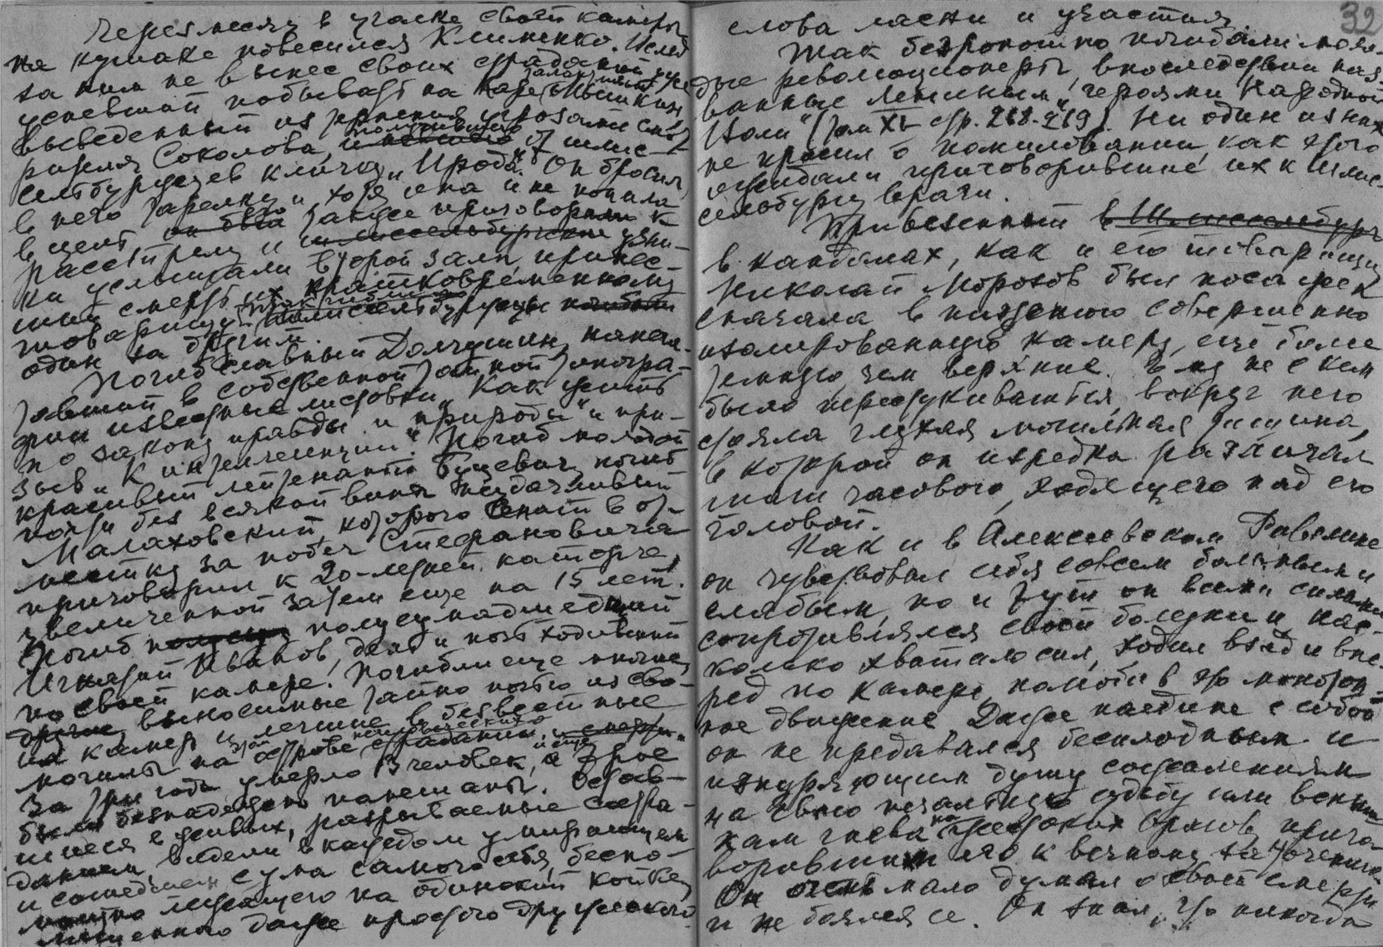 Через месяц в углаке своей камеры
на кушаке повесился Клименко. Вслед
за ним не вынес своих страданий уже
успевший побывать на Каре талантливый Мышкин,
выведенный из терпения угрозами смот-
рителя Соколова, получившего от шлис-
сельбуржцев кличку „Ирода“. Он бросил
в него тарелку и, хотя она и не попала
в цель, был также приговорен к
расстрелу и узни-
ки услышали второй залп, принес-
ший смерть их кратковременному
товарищу. Так гибли шлиссельбуржцы
один за другим.
Погиб славный Долгушин, напеча-
тавший в собственной тайной типогра-
фии известные листовки „Как жить
по закону правды и природы“ и при-
зыв „К интеллигенции“. Погиб молодой
красивый лейтенант Буцевич, погиб
почти без всякой вины неудачливый
Малаховский, которого
за побег Стефановича
приговорил к 20-летней каторге,
увеличенной затем еще на 15 лет.
Погиб полусумашедший
Игнатий Иванов, день и ночь ходивший
по своей камере. Погибли еще многие
другие, выносимые тайно ночью из сво-
их камер и легшие в безвестные
могилы на этой острове человеческого страдания.
За три года умерло 13 человек, и еще трое
были безнадежно помешаны. Остав-
шиеся в живых, разрываемые состра-
данием, видели в каждом умирающем
и сошедшем с ума самого себя, беспо-
мощно лежащего на одинокой койке,
лишенного даже простого дружеского
32
слова ласки и участия.
Так безропотно погибали моло-
дые революционеры, впоследствии наз-
ванные Лениным „героями Народной
Воли“ (том XV стр. 268-269). Ни один из них
не просил о помиловании, как этого
ожидали приговорившие их к Шлис-
сельбургу враги.
Привезенный в Шлиссельбург
в кандалах, как и его товарищи,
Николай Морозов был посажен
сначала в нижнюю совершенно
изолированную камеру, еще более
темную, чем верхние. Ему не с кем
было перестукиваться, вокруг него
стояла глухая могильная тишина,
в которой он изредка различал
шаги часового, ходящего над его
головой.
Как и в Алексеевском Равелине
он чувствовал себя совсем больным и
слабым, но и тут он всеми силами
сопротивлялся своей болезни и, нас-
колько хватало сил, ходил взад и впе-
ред по камере, помогая в это монотон-
ное движение. Даже наедине с собой
он не предавался бесплодным и
изнуряющим душу сожалениям
на свою печальную судьбу или вспыш-
кам гнева на жестоких врагов, приго-
воривших его к вечному заточению.
Он очень мало думал о своей смерти
и не боялся ее. Он знал, что никогда